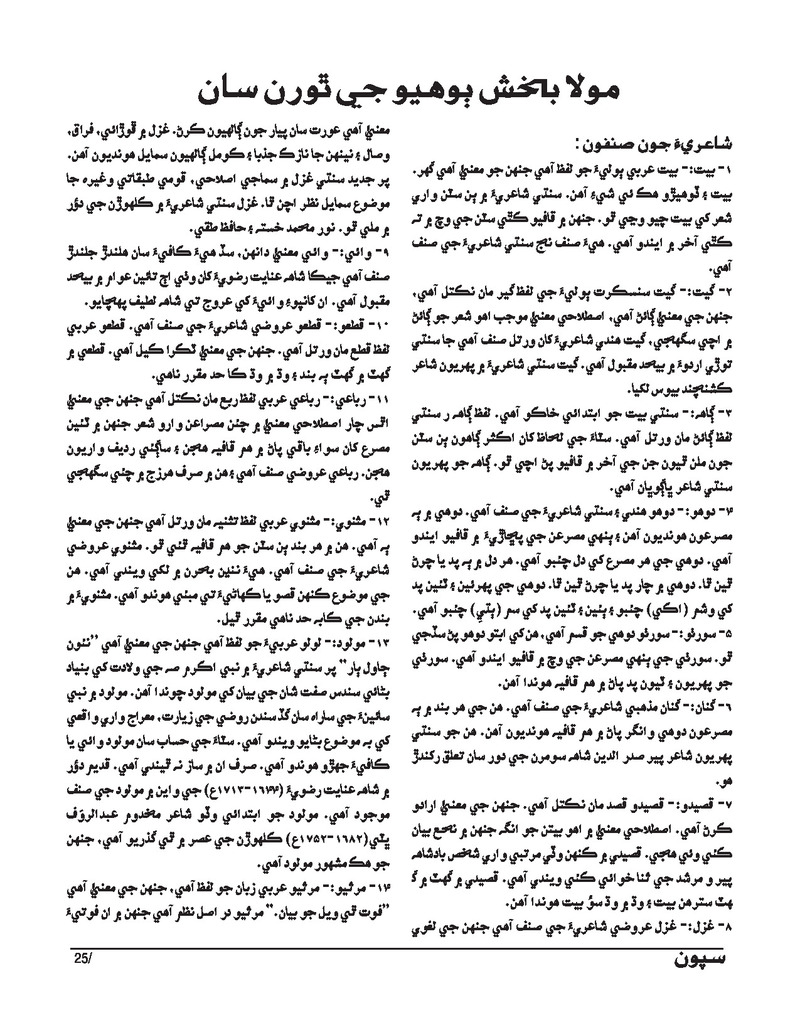 مولا بخش ٻوهيو جي ٿورن سان
شاعريءَ جون صنفون :
۱- بيت:- بيت عربي ٻوليءَ جو لفظ آهي جنهن جو معنيٰ آهي گهر.
بيت ۽ ڏوهيڙو هڪ ئي شيءِ آهن. سنڌي شاعريءَ ۾ ٻن سٽن واري
شعر کي بيت چيو وڃي ٿو. جنهن ۾ قافيو ڪٿي سٽن جي وچ ۾ ته
ڪٿي آخر ۾ ايندو آهي. هيءَ صنف نج سنڌي شاعريءَ جي صنف
آهي.
۲- گيت:- گيت سنسڪرت ٻوليءَ جي لفظ گير مان نڪتل آهي،
جنهن جي معنيٰ ڳائڻ آهي، اصطلاحي معنيٰ موجب اهو شعر جو ڳائڻ
۾ اچي سگهجي، گيت هندي شاعريءَ کان ورتل صنف آهي جا سنڌي
توڙي اردوءَ ۾ بيحد مقبول آهي. گيت سنڌي شاعريءَ ۾ پهريون شاعر
ڪشنچند بيوس لکيا.
۳- ڳاهه:- سنڌي بيت جو ابتدائي خاڪو آهي. لفظ ڳاهه ر سنڌي
لفظ ڳائڻ مان ورتل آهي. سٽاءَ جي لحاظ کان اڪثر ڳاهون ٻن سٽن
جون ملن ٿيون جن جي آخر ۾ قافيو پڻ اچي ٿو. ڳاهه جو پهريون
سنڌي شاعر ڀاڳوڀان آهي.
۴- دوهو:- دوهو هندي ۽ سنڌي شاعريءَ جي صنف آهي. دوهي ۾ ٻه
مصرعون هونديون آهن ۽ ٻنهي مصرعن جي پڇاڙيءَ ۾ قافيو ايندو
آهي. دوهي جي هر مصرع کي دل چئبو آهي. هر دل ۾ ٻه پد يا چرڻ
ٿين ٿا. دوهي ۾ چار پد يا چرڻ ٿين ٿا. دوهي جي پهرئين ۽ ٽئين پد
کي وشر (اڪي) چئبو ۽ ٻئين ۽ ٿئين پد کي سر (ٻٽي) چئبو آهي.
۵- سورٺو:- سورٺو دوهي جو قسم آهي، هن کي ابتو دوهو پڻ سڏجي
ٿو. سورٺي جي ٻنهي مصرعن جي وچ ۾ قافيو ايندو آهي. سورٺي
جو پهريون ۽ ٽيون پد پاڻ ۾ هم قافيه هوندا آهن.
۶- گنان:- گنان مذهبي شاعريءَ جي صنف آهي. هن جي هر بند ۾ ٻه
مصرعون دوهي وانگر پاڻ ۾ هم قافيه هونديون آهن. هن جو سنڌي
پهريون شاعر پير صدر الدين شاهه سومرن جي دور سان تعلق رکندڙ
هو.
۷- قصيدو:- قصيدو قصد مان نڪتل آهي. جنهن جي معنيٰ ارادو
ڪرڻ آهي. اصطلاحي معنيٰ ۾ اهو بيتن جو انگه جنهن ۾ نجع بيان
ڪئي وئي هجي. قصيدي ۾ ڪنهن وڏي مرتبي واري شخص بادشاهه
پير و مرشد جي ثنا خوائي ڪئي ويندي آهي. قصيدي ۾ گهٽ ۾ گ
هٽ سترهن بيت ۽ وڌ ۾ وڌ سؤ بيت هوندا آهن.
۸- غزل:- غزل عروضي شاعريءَ جي صنف آهي جنهن جي لغوي
معنيٰ آهي عورت سان پيار جون ڳالهيون ڪرڻ. غزل ۾ ڦوڙائي، فراق،
وصال ۽ نينهن جا نازڪ جذبا ۽ ڪومل ڳالهيون سمايل هونديون آهن.
پر جديد سنڌي غزل ۾ سماجي اصلاحي، قومي طبقاتي وغيره جا
موضوع سمايل نظر اچن ٿا. غزل سنڌي شاعريءَ ۾ ڪلهوڙن جي دؤر
۾ ملي ٿو. نور محمد خسته ۽ حافظ طقي.
۹- وائي:- وائي معنيٰ دانهن، سڏ هيءَ ڪافيءَ سان هلندڙ جلندڙ
صنف آهي جيڪا شاهه عنايت رضويءَ کان وٺي اڄ تائين عوام ۾ بيحد
مقبول آهي. ان کانپوءِ وائيءَ کي عروج تي شاهه لطيف پهچايو.
۱۰- قطعو:- قطعو عروضي شاعريءَ جي صنف آهي. قطعو عربي
لفظ قطع مان ورتل آهي. جنهن جي معنيٰ ٽڪرا ڪيل آهي. قطعي ۾
گهٽ ۾ گهٽ ٻه بند ۽ وڌ ۾ وڌ ڪا حد مقرر ناهي.
۱۱- رباعي:- رباعي عربي لفظ ربع مان نڪتل آهي جنهن جي معنيٰ
اٿس چار اصطلاحي معنيٰ ۾ چئن مصراعن وارو شعر جنهن ۾ ٽئين
مصرع کان سواءِ باقي پاڻ ۾ هم قافيه هجن ۽ ساڳئي رديف واريون
هجن. رباعي عروضي صنف آهي ۽ هن ۾ صرف هرزج ۾ چئي سگهجي
ٿي.
۱۲- مثنوي:- مثنوي عربي لفظ تثنيه مان ورتل آهي جنهن جي معنيٰ
ٻه آهي. هن ۾ هر بند ٻن سٽن جو هم قافيه ٿئي ٿو. مثنوي عروضي
شاعريءَ جي صنف آهي. هيءَ ننڍين بحرن ۾ لکي ويندي آهي. هن
جي موضوع ڪنهن قصو يا ڪهاڻيءَ تي مبني هوندو آهي. مثنويءَ ۾
بندن جي ڪابه حد ناهي مقرر ٿيل.
۱۳- مولود:- لولو عربيءَ جو لفظ آهي جنهن جي معنيٰ آهي ”نئون
ڄاول ٻار“ پر سنڌي شاعريءَ ۾ نبي اڪرم صه جي ولادت کي بنياد
بڻائي سندس صفت شان جي بيان کي مولود چوندا آهن. مولود ۾ نبي
سائينءَ جي ساراه سان گڏ سندن روضي جي زيارت، معراج واري واقعي
کي به موضوع بڻايو ويندو آهي. سٽاءَ جي حساب سان مولود وائي يا
ڪافيءَ جهڙو هوندو آهي. صرف ان ۾ ساز نه ڦيٽندي آهي. قديم دؤر
۾ شاهه عنايت رضويءَ (۱۶۴۴-۱۷۱۳ع) جي وارين ۾ مولود جي صنف
موجود آهي. مولود جو ابتدائي وڏو شاعر مخدوم عبدالرؤف
ڀٽي (۱۶۸۲-۱۷۵۲ع) ڪلهوڙن جي عصر ۾ ٿي گذريو آهي، جنهن
جو هڪ مشهور مولود آهي.
۱۴- مرثيو:- مرثيو عربي زبان جو لفظ آهي، جنهن جي معنيٰ آهي
”فوت ٿي ويل جو بيان.“ مرثيو در اصل نظر آهي جنهن ۾ ان فوتيءَ
سپون
25/